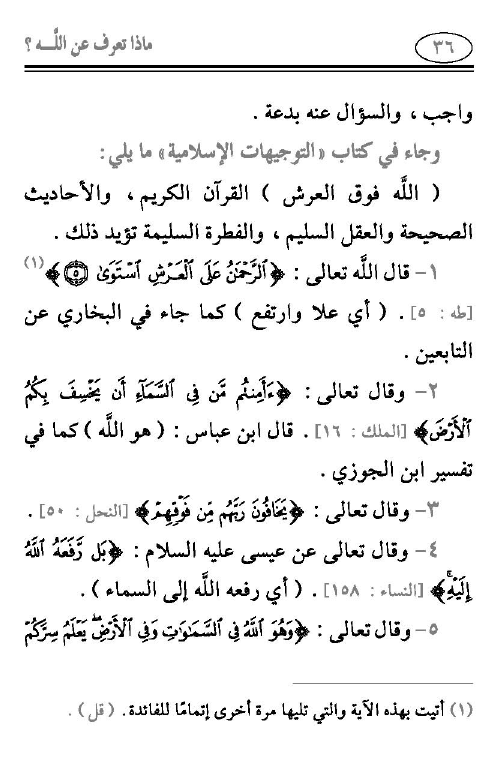 ٣٦
ماذا تعرف عن اللَّـه ؟
واجب ، والسؤال عنه بدعة .
وجاء في كتاب «التوجيهات الإسلامية» ما يلي:
( اللَّه فوق العرش ) القرآن الكريم ، والأحاديث
الصحيحة والعقل السليم ، والفطرة السليمة تؤيد ذلك .
١- قال اللَّه تعالى : ﴿ٱلرَّحْمَٰنُ عَلَى ٱلْعَرْشِ ٱسْتَوَىٰ ۝٥﴾(١)
[طه : ٥] . ( أي علا وارتفع ) كما جاء في البخاري عن
التابعين .
٢- وقال تعالى : ﴿ءَأَمِنتُم مَّن فِى ٱلسَّمَآءِ أَن يَخْسِفَ بِكُمُ
ٱلْأَرْضَ﴾ [الملك : ١٦] . قال ابن عباس : ( هو اللَّه ) كما في
تفسير ابن الجوزي .
٣- وقال تعالى : ﴿يَخَافُونَ رَبَّهُم مِّن فَوْقِهِمْ﴾ [النحل : ٥٠] .
٤- وقال تعالى عن عيسى عليه السلام : ﴿بَل رَّفَعَهُ ٱللَّهُ
إِلَيْهِ ۚ﴾ [النساء : ١٥٨] . ( أي رفعه اللَّه إلى السماء ) .
٥- وقال تعالى : ﴿وَهُوَ ٱللَّهُ فِى ٱلسَّمَٰوَٰتِ وَفِى ٱلْأَرْضِ ۖ يَعْلَمُ سِرَّكُمْ
(١) أتيت بهذه الآية والتي تليها مرة أخرى إتمامًا للفائدة. ( قل ) .